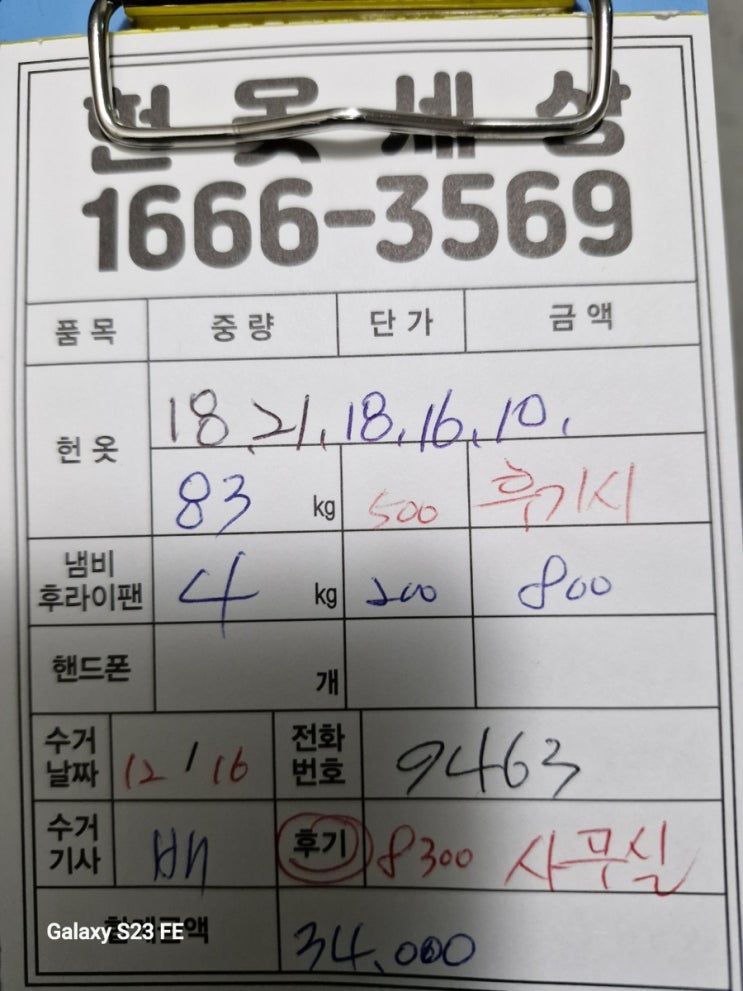 헌 옷 세 상
1666-3569
품 목 중 량 단 가 금 액
헌 옷 18, 21, 18, 16, 10,
83 kg 500 후기시
냄비 후라이팬 4 kg 200 800
핸드폰 개
수거 날짜 12 / 16 전화 번호 9463
수거 기사 배 후기 8300 사무실
34,000
Galaxy S23 FE